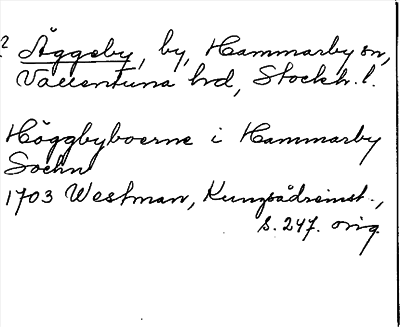 ? Äggeby, by, Hammarby sn,
Vallentuna hd, Stockh. l.
Häggbyboerne i Hammarby
Sochn
1703 Westman, Kungsådreinst.,
s. 247. orig.